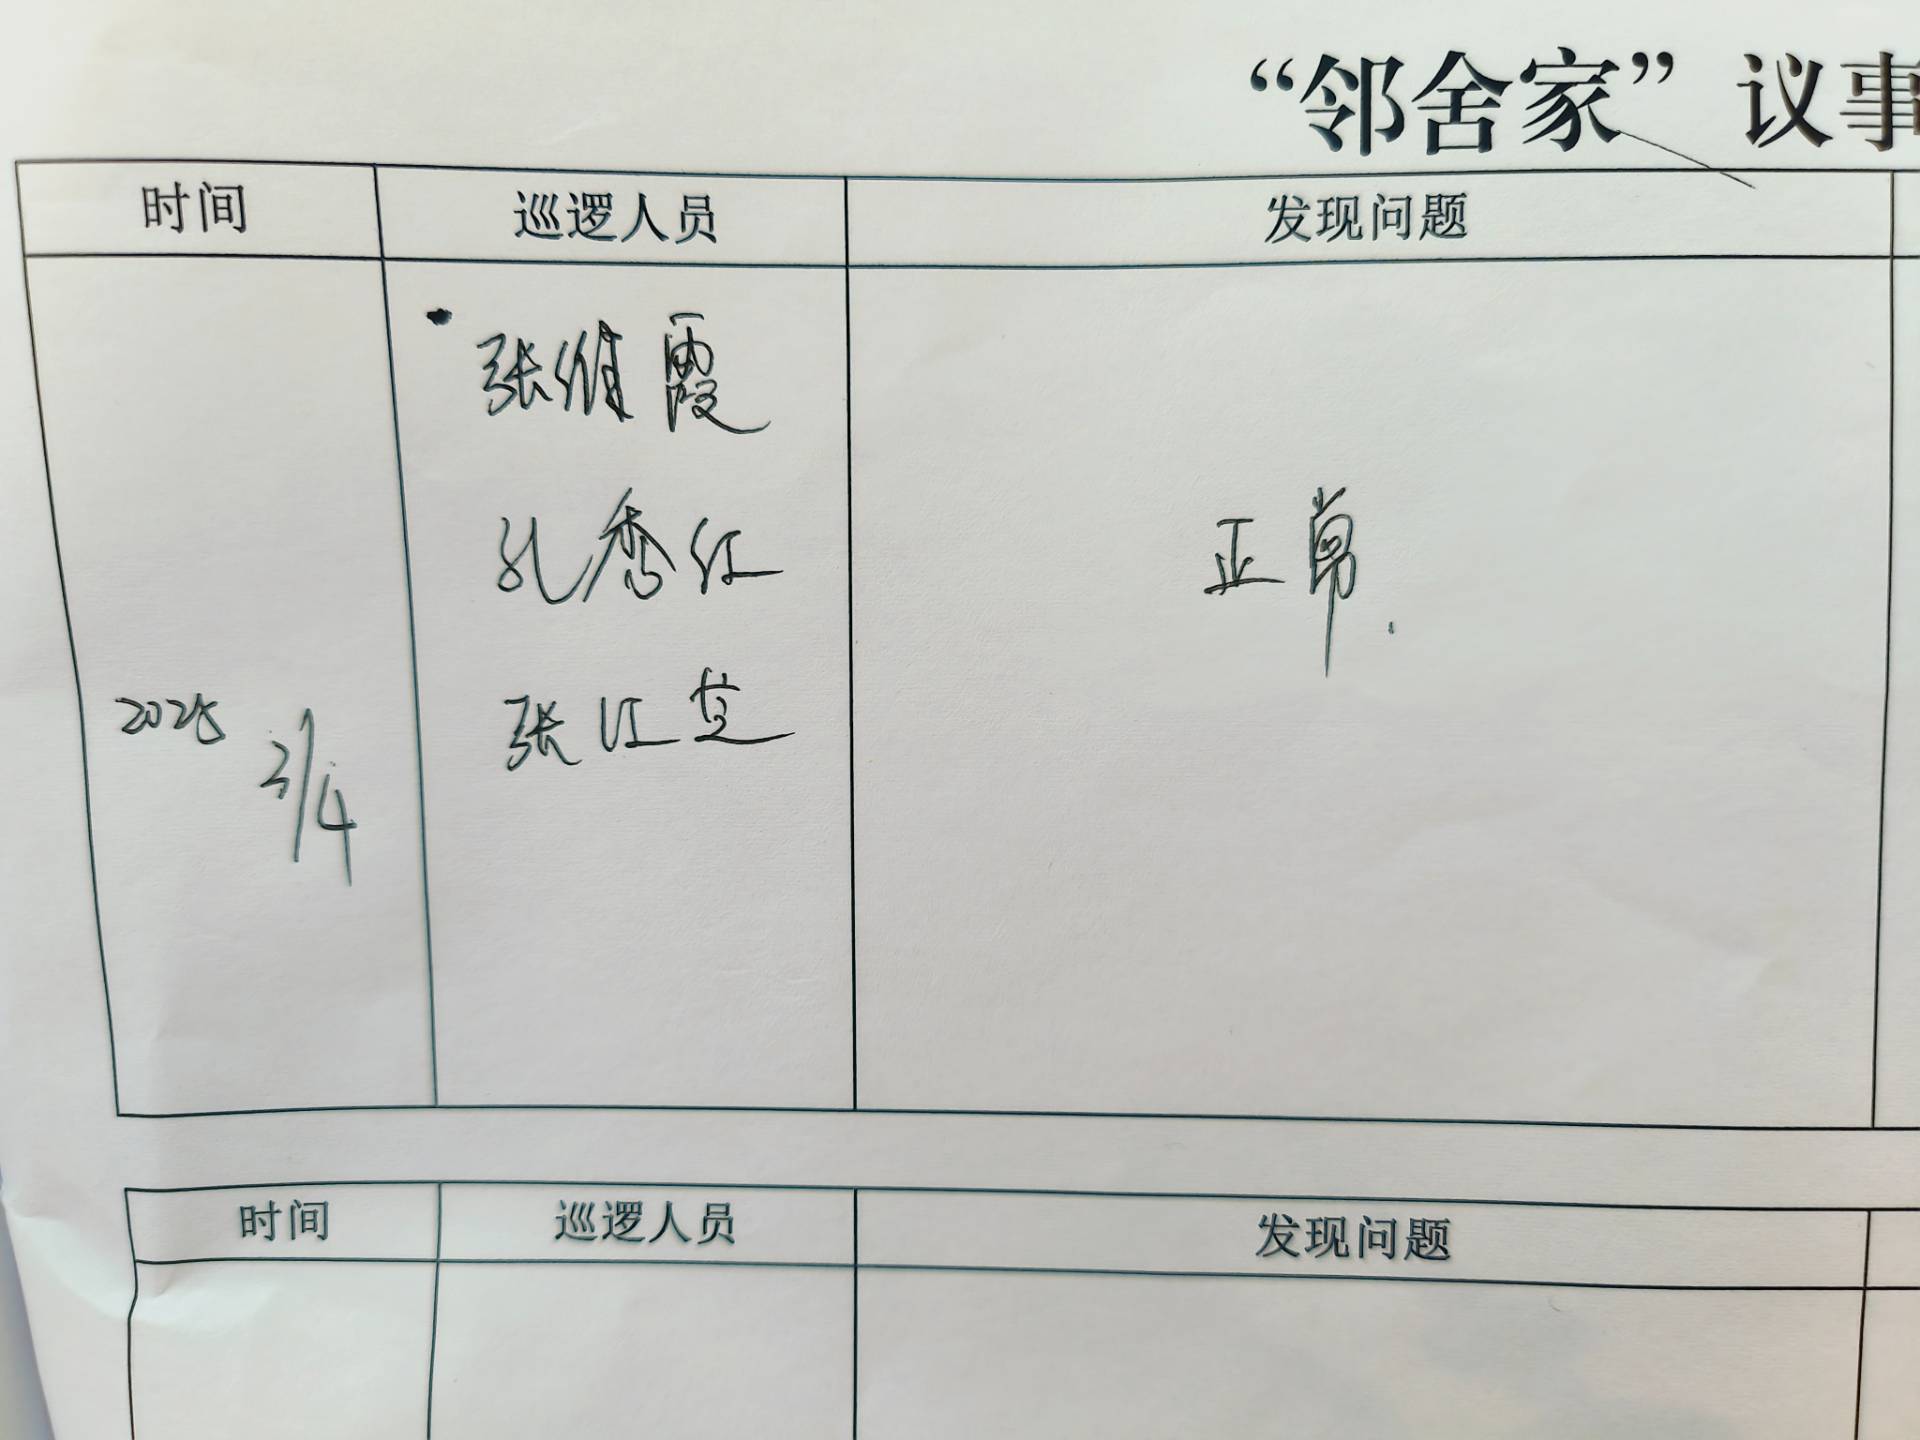 “邻舍家”议事
时间 巡逻人员 发现问题
张维霞
孔秀红 正常.
张江芝
2025 3/4
时间 巡逻人员 发现问题